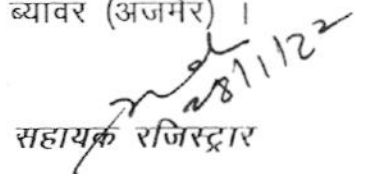 ब्यावर (अजमेर) ।
28/1/22
सहायक रजिस्ट्रार